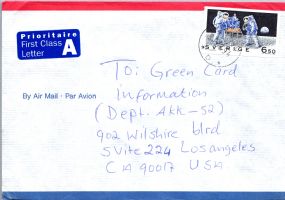 Prioritaire
First Class
Letter
A
SVERIGE 6.50
By Air Mail · Par Avion
To: Green Card
information
(Dept. Akk-52)
902 Wilshire blrd
SVite 224 Los angeles
CA 90017 USA